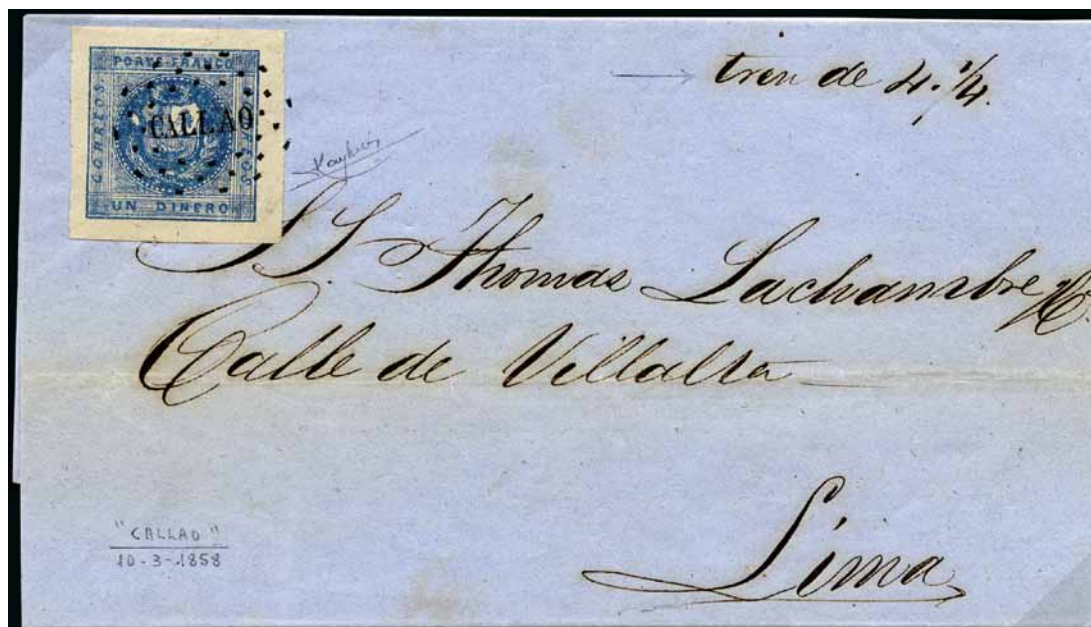 PORTE FRANCO
CORREOS
CALLAO
UN DINERO
tren de 4.1/4.
SS Thomas Lachambre y Ca
Calle de Villalta
Lima
"CALLAO"
10-3-1858